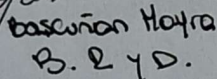 Bascuñan Mayra
B. R y D.